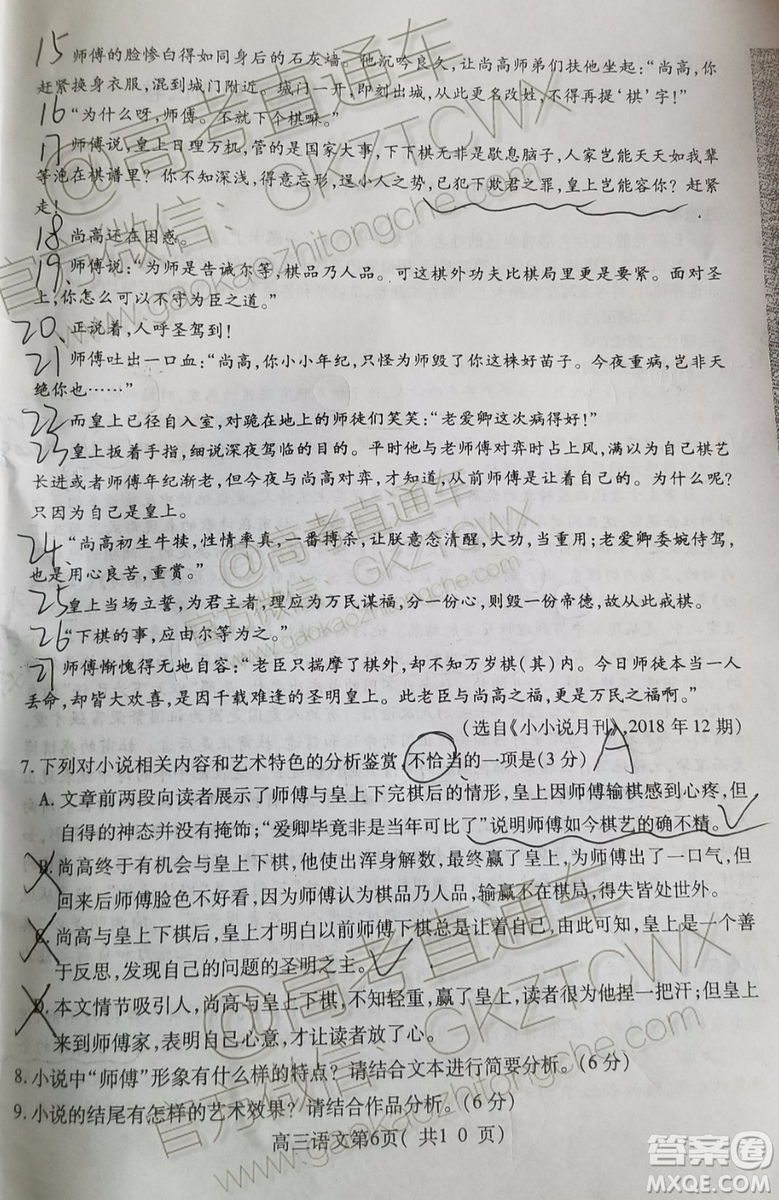 15 师傅的脸惨白得如同身后的石灰墙。他沉吟良久，让尚高师弟们扶他坐起：“尚高，你
赶紧换身衣服，混到城门附近。城门一开，即刻出城，从此更名改姓，不得再提‘棋’字！”
16 “为什么呀，师傅。不就下个棋嘛。”
17 师傅说，皇上日理万机，管的是国家大事，下下棋无非是歇息脑子，人家岂能天天如我辈
等泡在棋谱里？你不知深浅，得意忘形，逞小人之势，已犯下欺君之罪，皇上岂能容你？赶紧
走！
18 尚高还在困惑。
19、师傅说：“为师是告诫尔等，棋品乃人品。可这棋外功夫比棋局里更是要紧。面对圣
上，你怎么可以不守为臣之道。”
20、正说着，人呼圣驾到！
21 师傅吐出一口血：“尚高，你小小年纪，只怪为师毁了你这株好苗子。今夜重病，岂非天
绝你也……”
22 而皇上已径自入室，对跪在地上的师徒们笑笑：“老爱卿这次病得好！”
23 皇上扳着手指，细说深夜驾临的目的。平时他与老师傅对弈时占上风，满以为自己棋艺
长进或者师傅年纪渐老，但今夜与尚高对弈，才知道，从前师傅是让着自己的。为什么呢？
只因为自己是皇上。
24、“尚高初生牛犊，性情率真，一番搏杀，让朕意念清醒，大功，当重用；老爱卿委婉侍驾，
也是用心良苦，重赏。”
25 皇上当场立誓，为君主者，理应为万民谋福，分一份心，则毁一份帝德，故从此戒棋。
26 “下棋的事，应由尔等为之。”
27 师傅惭愧得无地自容：“老臣只揣摩了棋外，却不知万岁棋(其)内。今日师徒本当一人
丢命，却皆大欢喜，是因千载难逢的圣明皇上。此老臣与尚高之福，更是万民之福啊。”
(选自《小小说月刊》，2018年12期)
7.下列对小说相关内容和艺术特色的分析鉴赏，不恰当的一项是(3分) A
A.文章前两段向读者展示了师傅与皇上下完棋后的情形，皇上因师傅输棋感到心疼，但
自得的神态并没有掩饰；“爱卿毕竟非是当年可比了”说明师傅如今棋艺的确不精。
B.尚高终于有机会与皇上下棋，他使出浑身解数，最终赢了皇上，为师傅出了一口气，但
回来后师傅脸色不好看，因为师傅认为棋品乃人品，输赢不在棋局，得失皆处世外。
C.尚高与皇上下棋后，皇上才明白以前师傅下棋总是让着自己，由此可知，皇上是一个善
于反思，发现自己的问题的圣明之主。
D.本文情节吸引人，尚高与皇上下棋，不知轻重，赢了皇上，读者很为他捏一把汗；但皇上
来到师傅家，表明自己心意，才让读者放了心。
8.小说中“师傅”形象有什么样的特点？请结合文本进行简要分析。(6分)
9.小说的结尾有怎样的艺术效果？请结合作品分析。(6分)
高三语文第6页( 共10页)
@高考直通车
官方微信：GKZTCWX
www.gaokaozhitongche.com
@高考直通车
官方微信：GKZTCWX
www.gaokaozhitongche.com
@高考直通车
官方微信：GKZTCWX
www.gaokaozhitongche.com
答案圈
MXQE.COM